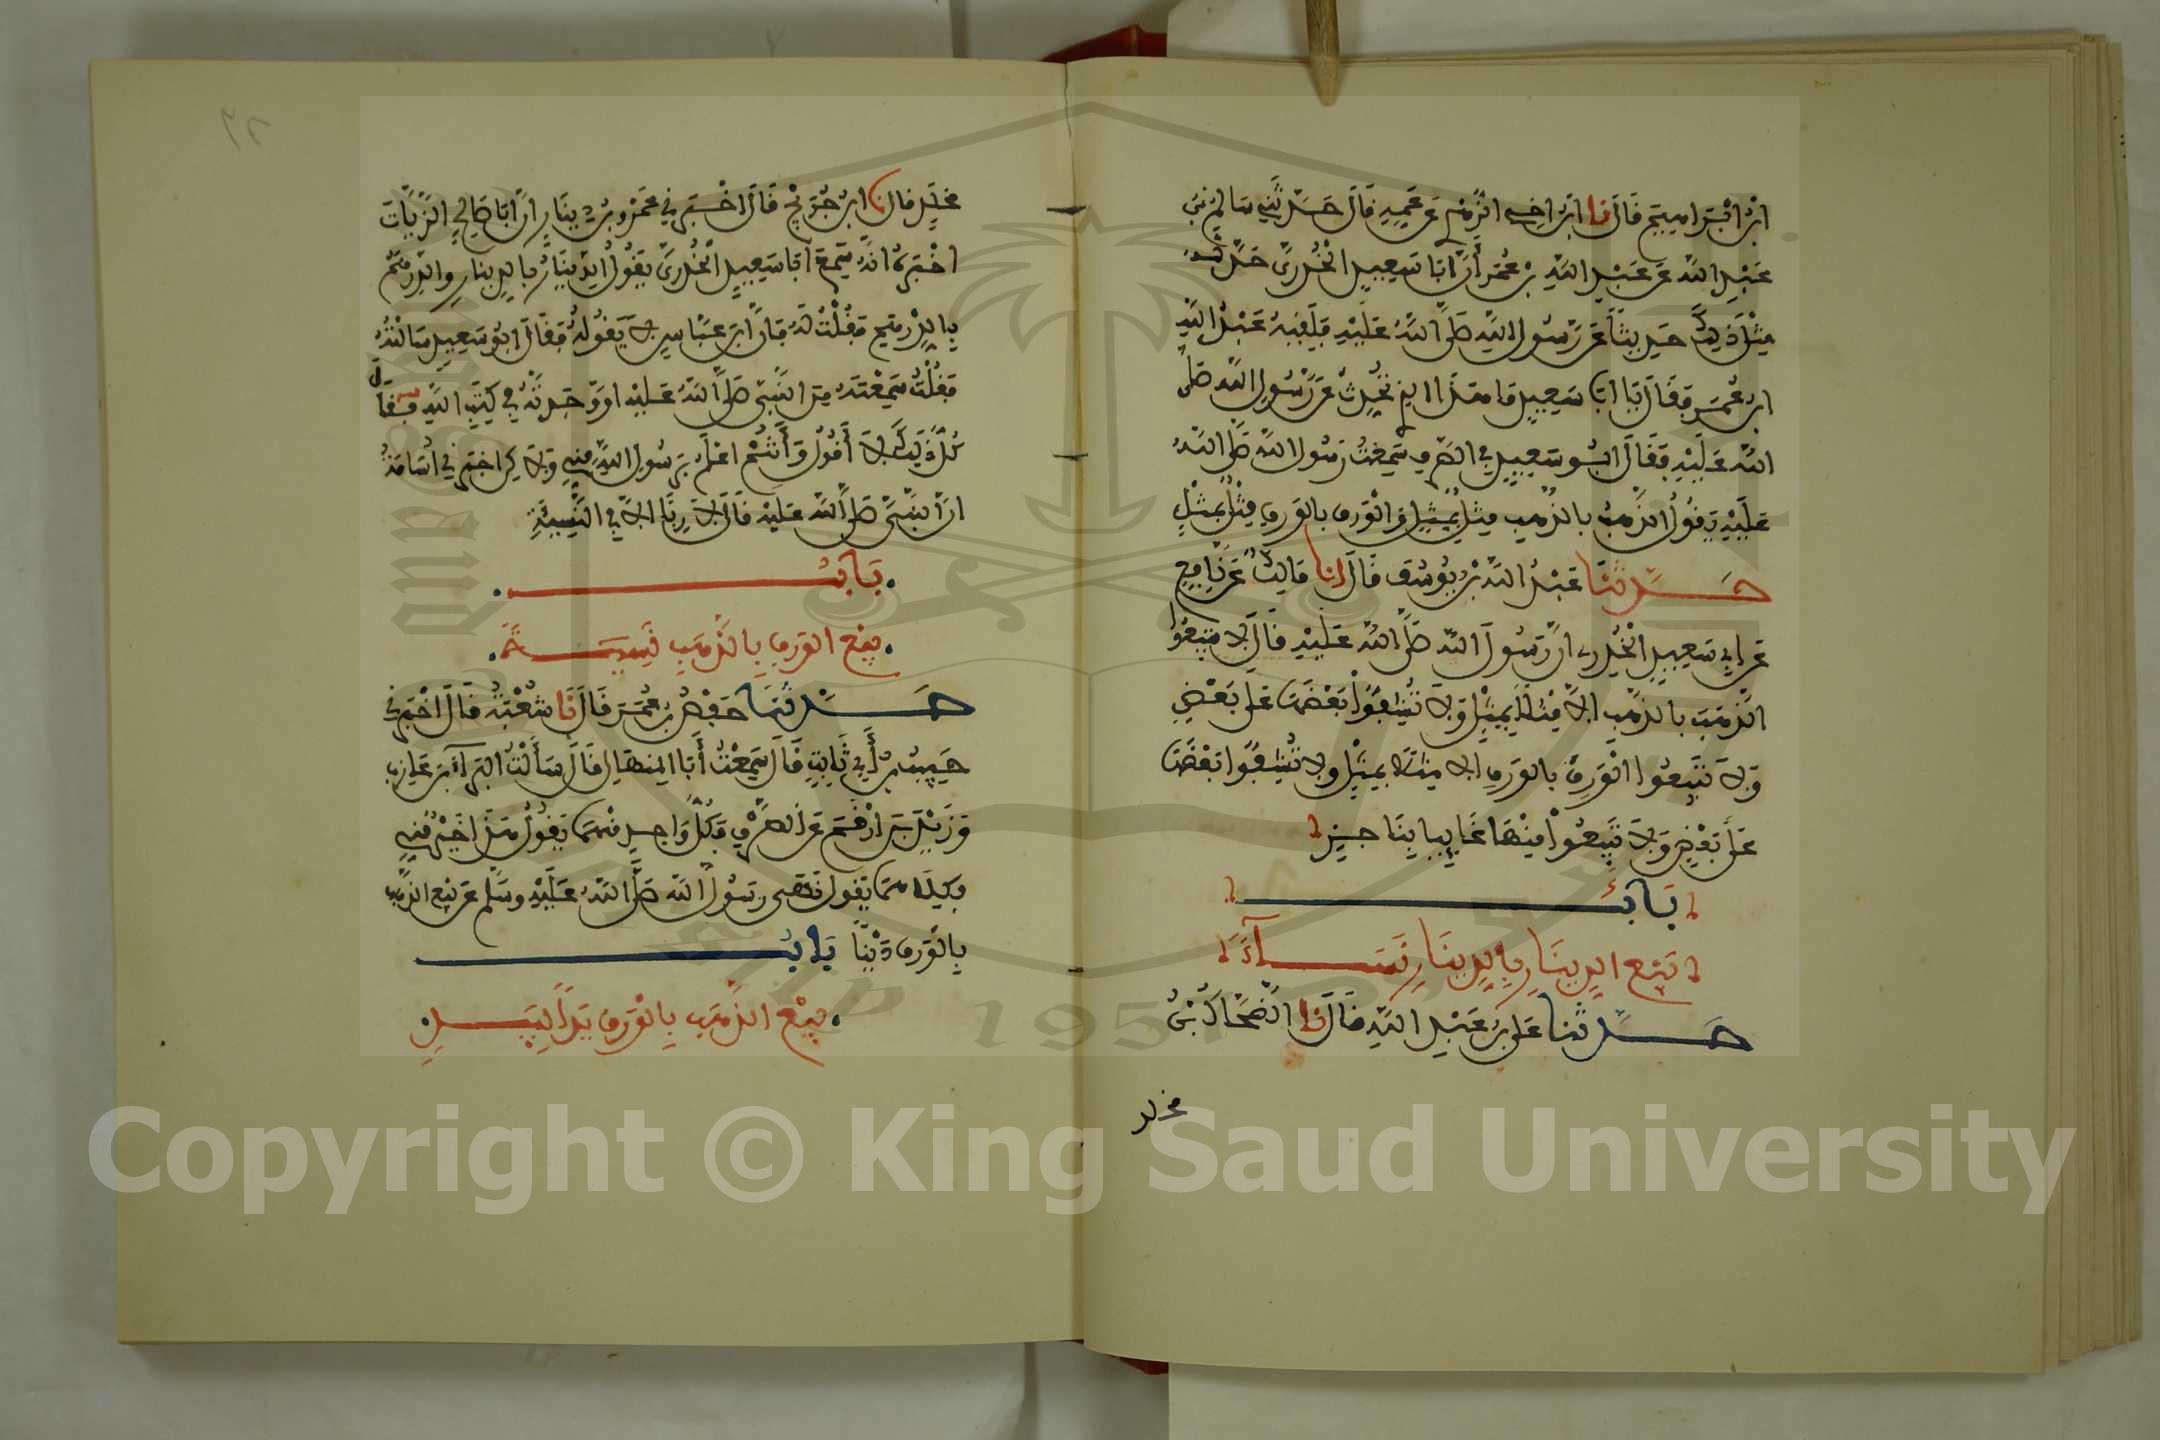 ابن ابراهيم قال نا ابن اخي الزهري عن عمه قال حدثني سالم بن
عبد الله عن عبد الله بن عمر أن أبا سعيد الخدري حدثه
مثل ذلك حديثا عن رسول الله صلى الله عليه فلقيه عبد الله
ابن عمر فقال يا أبا سعيد ما هذا الذي تحدث عن رسول الله صلى
الله عليه فقال ابو سعيد في الصرف سمعت رسول الله صلى الله
عليه يقول الذهب بالذهب مثل بمثل والورق بالورق مثل بمثل
حدثنا عبد الله بن يوسف قال انا مالك عن نافع
عن ابي سعيد الخدري ان رسول الله صلى الله عليه قال لا تبيعوا
الذهب بالذهب الا مثلا بمثل ولا تشفوا بعضها على بعض
ولا تبيعوا الورق بالورق الا مثلا بمثل ولا تشفوا بعضها
على بعض ولا تبيعوا منها غايبا بناجز
باب
بيع الدينار بالدينار نساء
حدثنا علي بن عبد الله قال نا الضحاك بن
مخلد
مخلد قال نا ابن جريج قال اخبرني عمرو بن دينار ان أبا صالح الزيات
اخبره انه سمع ابا سعيد الخدري يقول الدينار بالدينار والدرهم
بالدرهم فقلت له فان ابن عباس لا يقوله فقال ابو سعيد سالته
فقلت سمعته من النبي صلى الله عليه او وجدته في كتب الله فقال
كل ذلك لا أقول وأنتم اعلم برسول الله مني ولاكن اخبرني اسامة
ان النبي صلى الله عليه قال لا ربا الا في النسيئة
باب
بيع الورق بالذهب نسيئة
حدثنا حفص بن عمر قال نا شعبة قال اخبرني
حبيب بن أبي ثابت قال سمعت أبا المنهال قال سألت البراء بن عازب
وزيد بن ارقم عن الصرف فكل واحد منهما يقول هذا خير مني
فكلاهما يقول نهى رسول الله صلى الله عليه وسلم عن بيع الذهب
بالورق دينا باب
بيع الذهب بالورق يدا بيد
Copyright © King Saud University
1957